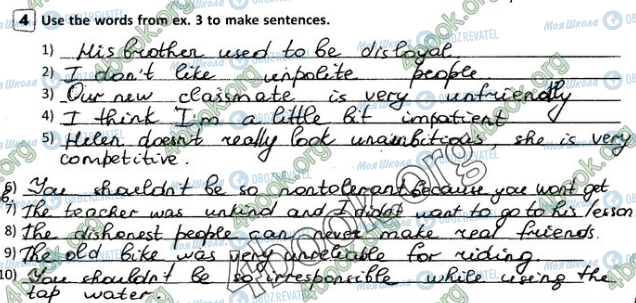 4 Use the words from ex. 3 to make sentences.
1) His brother used to be disloyal.
2) I don't like unpolite people.
3) Our new classmate is very unfriendly
4) I think I'm a little bit impatient
5) Helen doesn't really look unambitious, she is very
competitive.
6) You shouldn't be so nontolerant because you won't get
7) The teacher was unkind and I didn't want to go to his lesson
8) The dishonest people can never make real friends.
9) The old bike was very unreliable for riding.
10) You shouldn't be so irresponsible while using the
tap water.